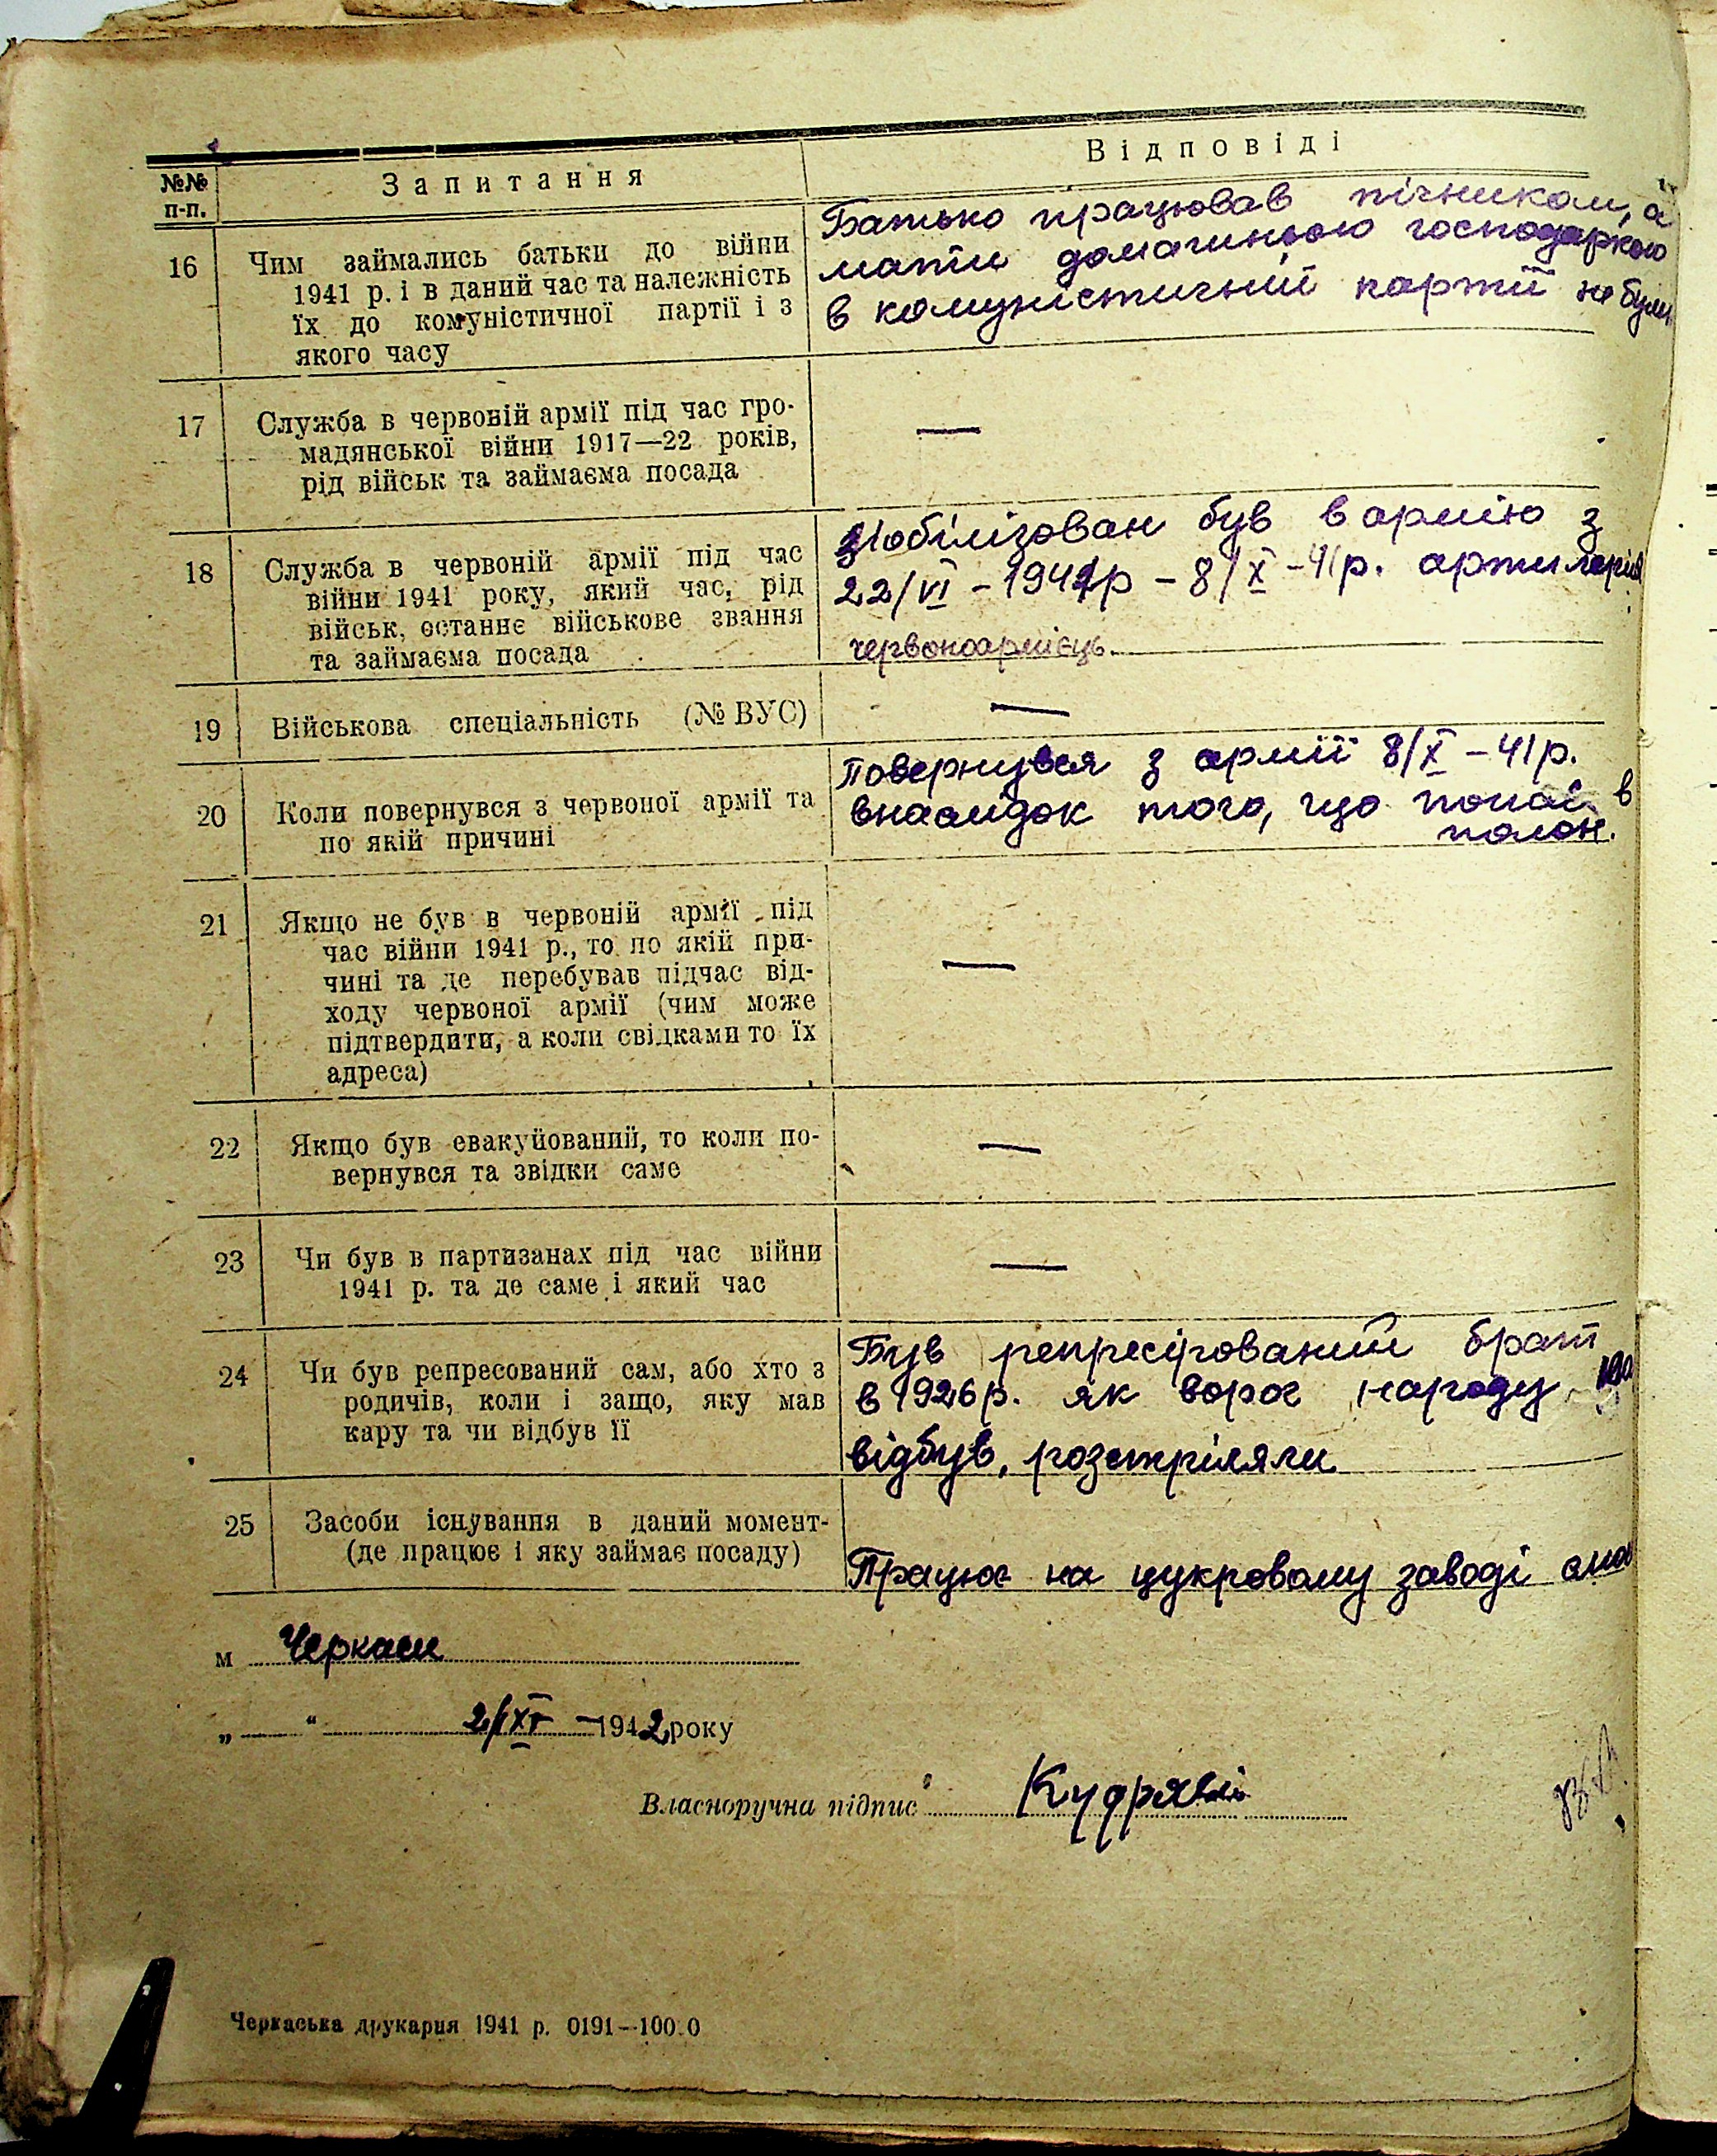 №№ п-п.
Запитання
Відповіді
16
Чим займались батьки до війни
1941 р. і в даний час та належність
їх до комуністичної партії і з
якого часу
Батько працював пічником, а
мати домашньою господаркою
в комуністичній партії не були
17
Служба в червоній армії під час гро-
мадянської війни 1917—22 років,
рід військ та займаєма посада
—
18
Служба в червоній армії під час
війни 1941 року, який час, рід
військ, останнє військове звання
та займаєма посада
Мобілізован був в армію з
22/VI - 1941р - 8/X - 41р. артилерія
червоноармієць
19
Військова спеціальність (№ ВУС)
—
20
Коли повернувся з червоної армії та
по якій причині
Повернувся з армії 8/X - 41р.
внаслідок того, що попав в
полон.
21
Якщо не був в червоній армії під
час війни 1941 р., то по якій при-
чині та де перебував підчас від-
ходу червоної армії (чим може
підтвердити, а коли свідками то їх
адреса)
—
22
Якщо був евакуйований, то коли по-
вернувся та звідки саме
—
23
Чи був в партизанах під час війни
1941 р. та де саме і який час
—
24
Чи був репресований сам, або хто з
родичів, коли і защо, яку мав
кару та чи відбув її
Був репресірований брат
в 1926р. як ворог народу
відбув, розстріляли
25
Засоби існування в даний момент-
(де працює і яку займає посаду)
Працює на цукровому заводі
м Черкаси
„ — “ 2/XI - 1942 року
Власноручна підпис Кудрявий
Черкаська друкарня 1941 р. 0191—100.0